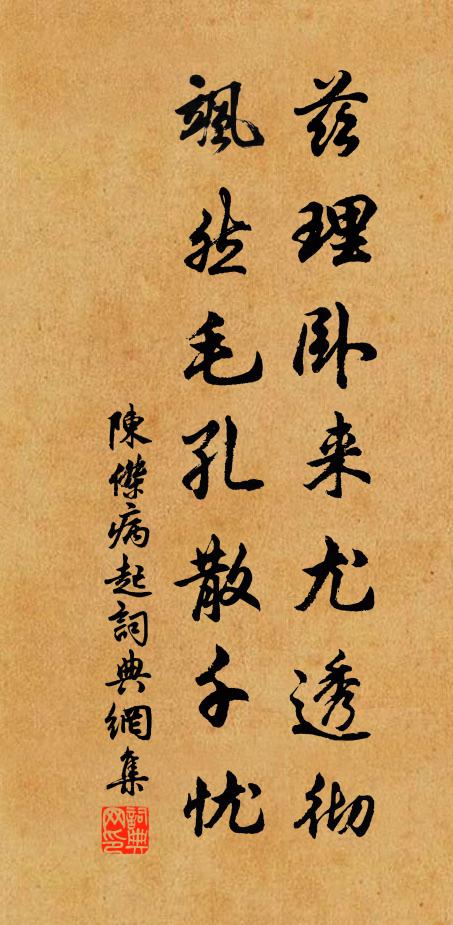 兹理卧来尤透彻
飒然毛孔散千忧
陳傑病起詞典網集
詞典网印